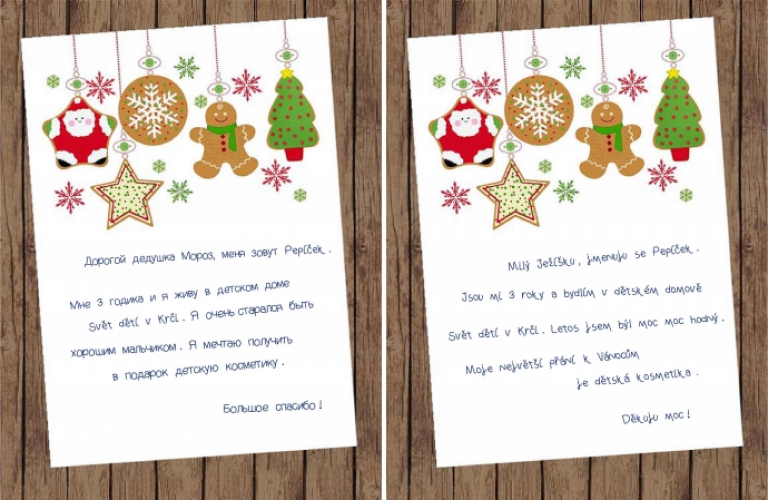 Дорогой дедушка Мороз, меня зовут Pepíček.
Мне 3 годика и я живу в детском доме
Svět dětí v Krči. Я очень старался быть
хорошим мальчиком. Я мечтаю получить
в подарок детскую косметику.
Большое спасибо!
Milý Ježíšku, jmenuju se Pepíček.
Jsou mi 3 roky a bydlím v dětském domově
Svět dětí v Krči. Letos jsem býl moc moc hodný.
Moje největší přání k Vánocům
je dětská kosmetika.
Děkuju moc!